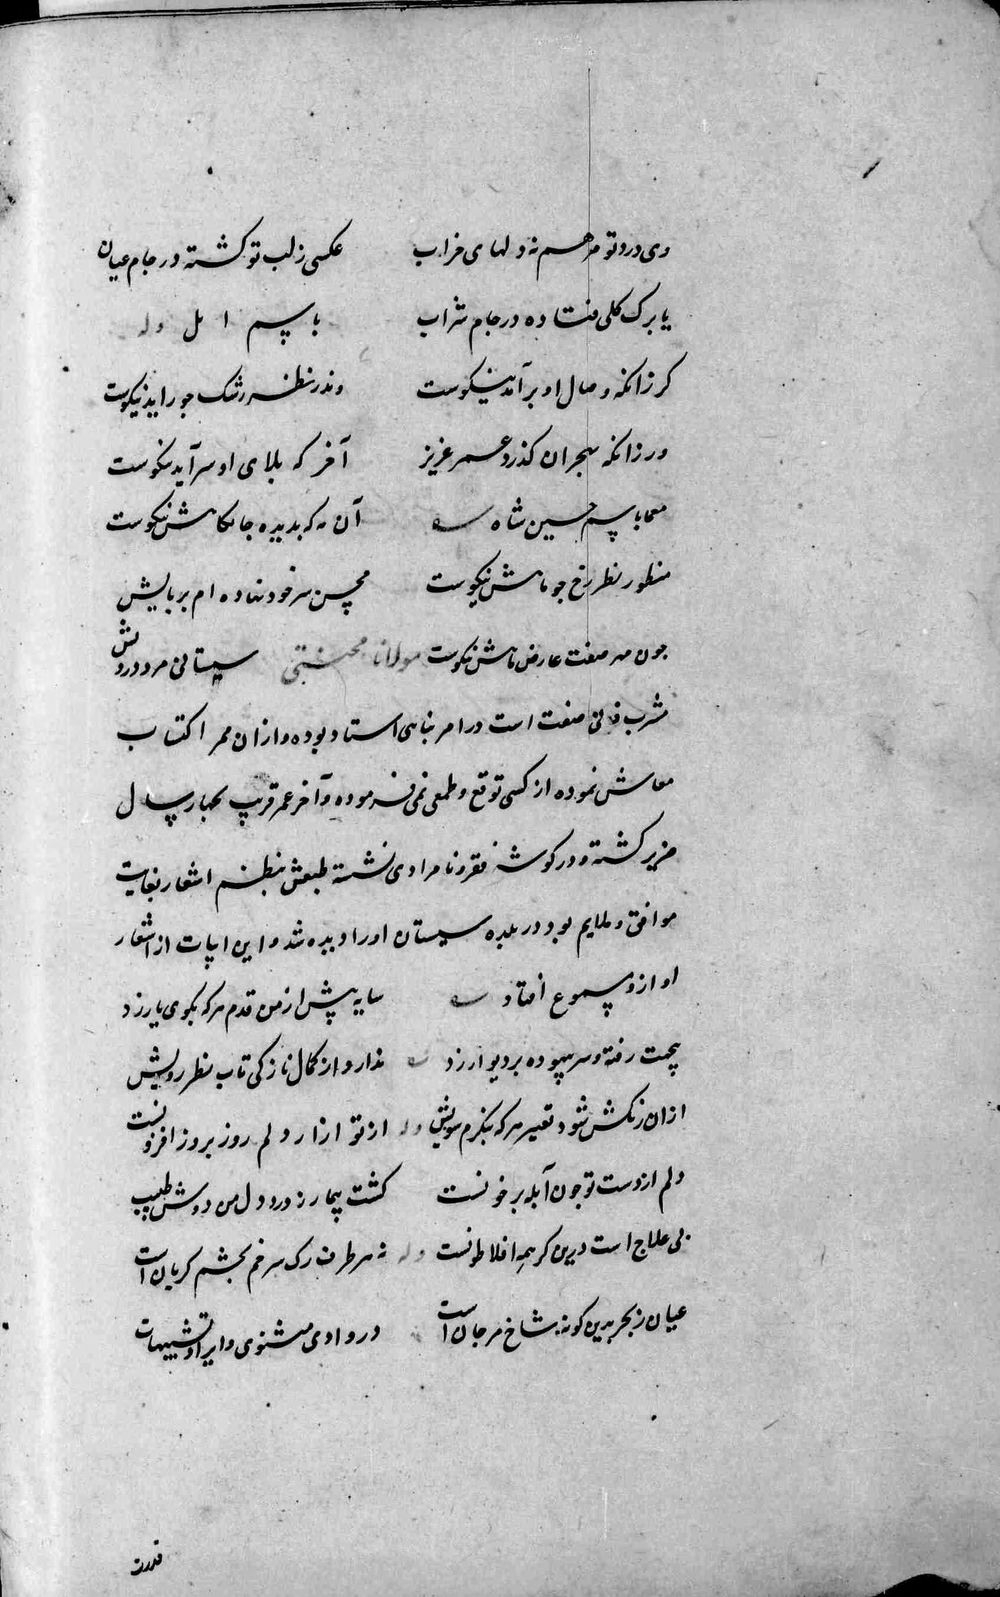 وی درد تو مرهم نه دلهای خراب عکسی ز لب تو کشته در جام عیان
یا برک کلی فتاده در جام شراب باسم امل وله
کر زانکه وصال او برآید نیکوست وندر نظر رشک حور آید نیکوست
ور زانکه بهجران کذرد عمر عزیز آخر که بلای او سرآید نیکوست
معما باسم حسین شاه آن مه که بدیده جایکاهش نیکوست
منظور نظر رخ چو ماهش نیکوست محسن سر خود نهاده ام بر پایش
چون مه صفت عارض ماهش نیکوست مولانا محنتی سیستانی مرد درویش
مشرب فانی صفت است در امر بنایی استاد بوده و ازان ممر اکتساب
معاش نموده از کسی توقع و طمعی نمی فرموده و آخر عمر قریب بچهار سال
ضریر کشته و در کوشه فقر و نامرادی نشسته طبعش بنظم اشعار بغایت
موافق و ملایم بود در بلده سیستان او را دیده شد و این ابیات از اشعار
او ازو مسموع افتاد سایه پیش از من قدم هر که بکوی یار زد
پیچت رفته و سر بیهوده بر دیوار زد ندارد از کمال نازکی تاب نظر رویش
ازان رنکش شود تغییر هر که بنکرم سویش وله از تو آزار دلم روز بروز افزونست
دلم از دست تو چون آبله پر خونست کشت بیمار ز درد دل من دوش طبیب
بی علاج است درین کر همه افلاطونست وله نه هر طرف رک سرخم بچشم کریان است
عیان ز بحر بدین کونه شاخ مرجان است در وادی مثنوی و ایراد تشبیهات
قدرت